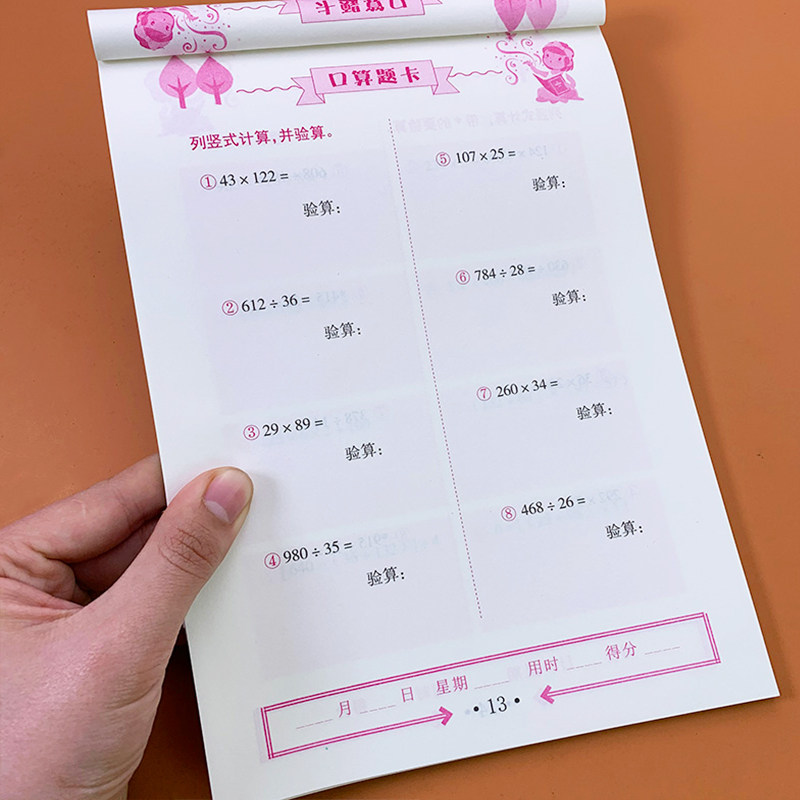 口算题卡
口算题卡
列竖式计算,并验算。
①43×122=
验算:
②612÷36=
验算:
③29×89=
验算:
④980÷35=
验算:
⑤107×25=
验算:
⑥784÷28=
验算:
⑦260×34=
验算:
⑧468÷26=
验算:
____月____日 星期____用时____得分____
·13·